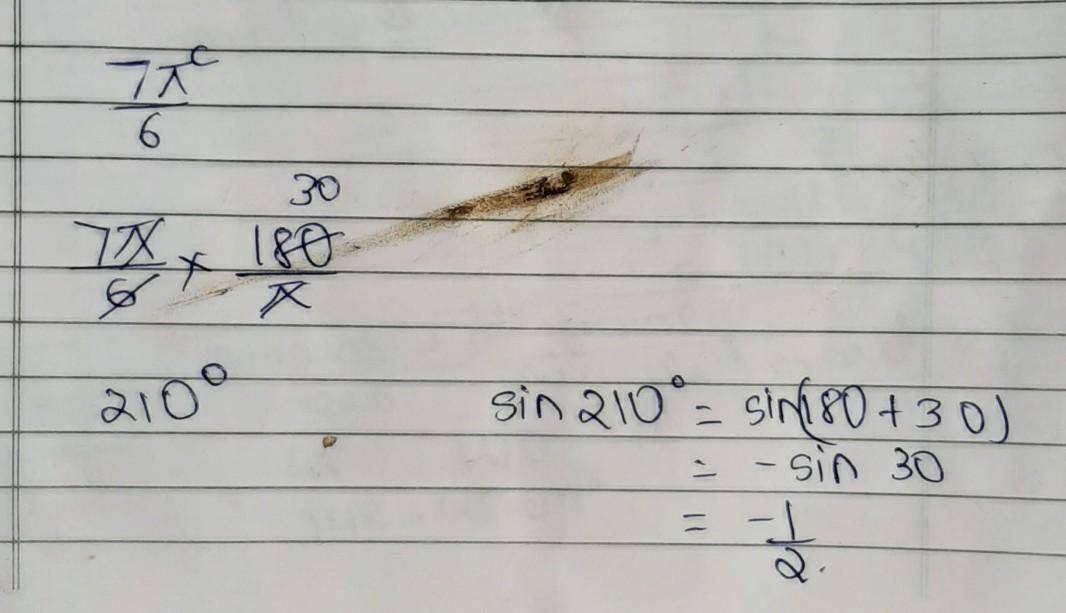 7π^c
6
30
7π/6 × 180/π
210° sin 210° = sin(180 + 30)
= -sin 30
= -1/2.